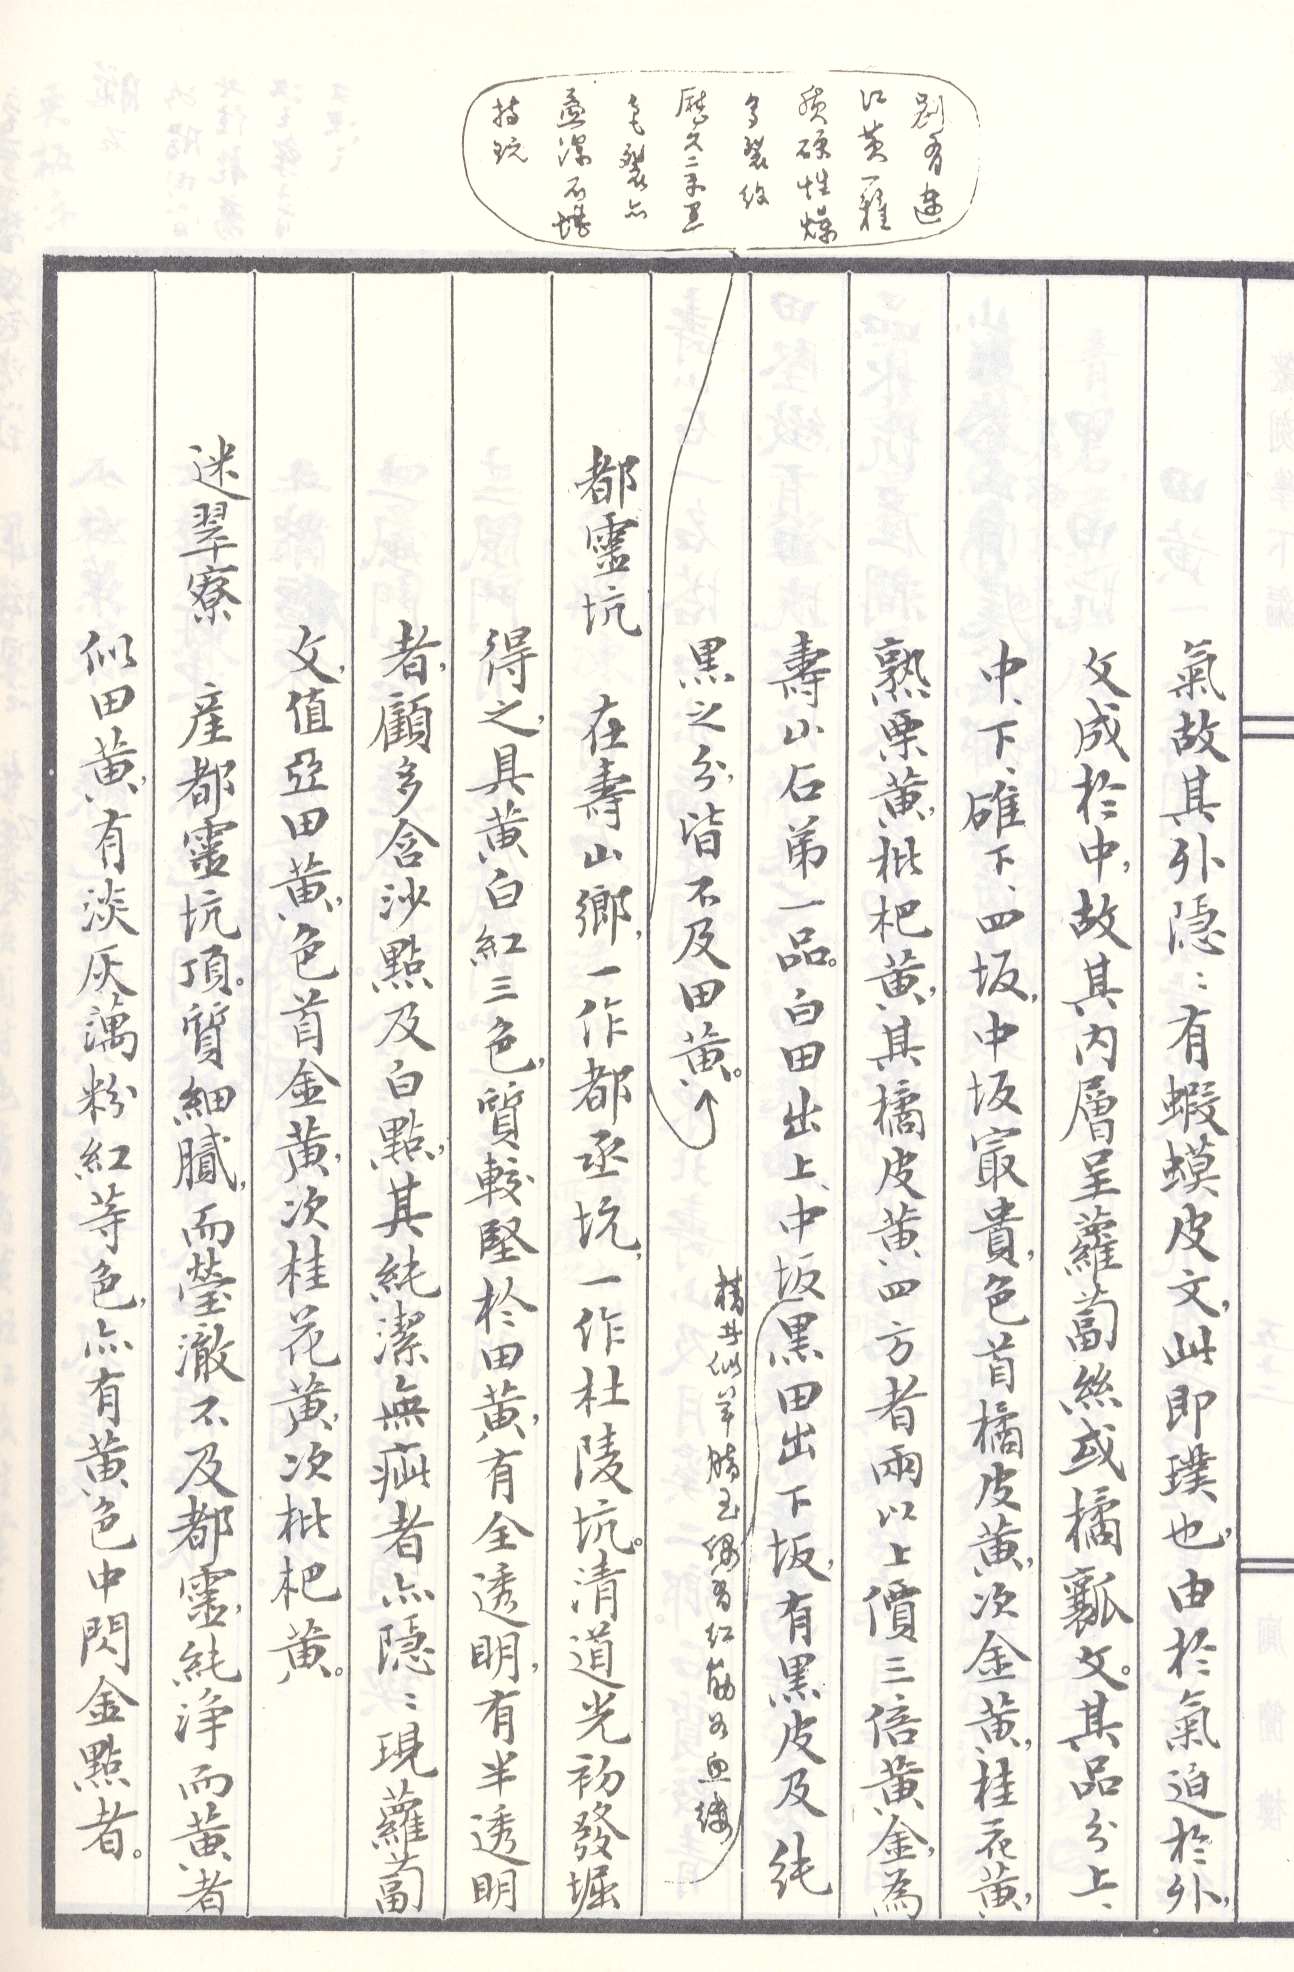 別有連
江黃一種
質硬性燥
多裂紋
歷久二年且
色裂亦
益深不堪
持玩
氣故其外隱〻有蝦蟆皮文，此即璞也，由於氣迫於外，
文成於中，故其內層呈蘿蔔絲或橘瓤文。其品分上、
中、下、碓下、四坂，中坂最貴，色首橘皮黃，次金黃，桂花黃，
熟栗黃，枇杷黃，其橘皮黃四方者兩以上價三倍黃金，為
壽山石第一品。白田出上、中坂黑田出下坂，有黑皮及純
精者似羊脂玉偶有紅筋如血縷
黑之分，皆不及田黃。
都靈坑 在壽山鄉，一作都丞坑，一作杜陵坑。清道光初發掘
得之，具黃白紅三色，質較堅於田黃，有全透明，有半透明
者，顧多含沙點及白點，其純潔無疵者亦隱〻現蘿蔔
文，值亞田黃，色首金黃，次桂花黃，次枇杷黃。
迷翠寮 產都靈坑頂。質細膩，而瑩澈不及都靈，純淨而黃者
似田黃，有淡灰藕粉紅等色，亦有黃色中閃金點者。